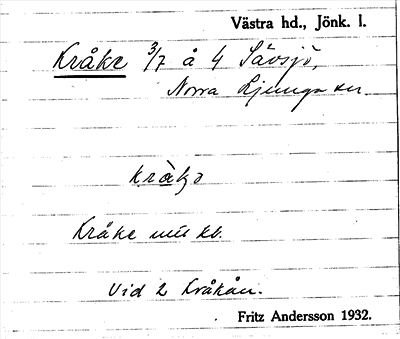 Västra hd., Jönk. l.
Kråke 3/7 å 4 Sävsjö,
Norra Ljunga sn.
kråkə
Kråke mil kb.
Vid 2 Kråkån.
Fritz Andersson 1932.